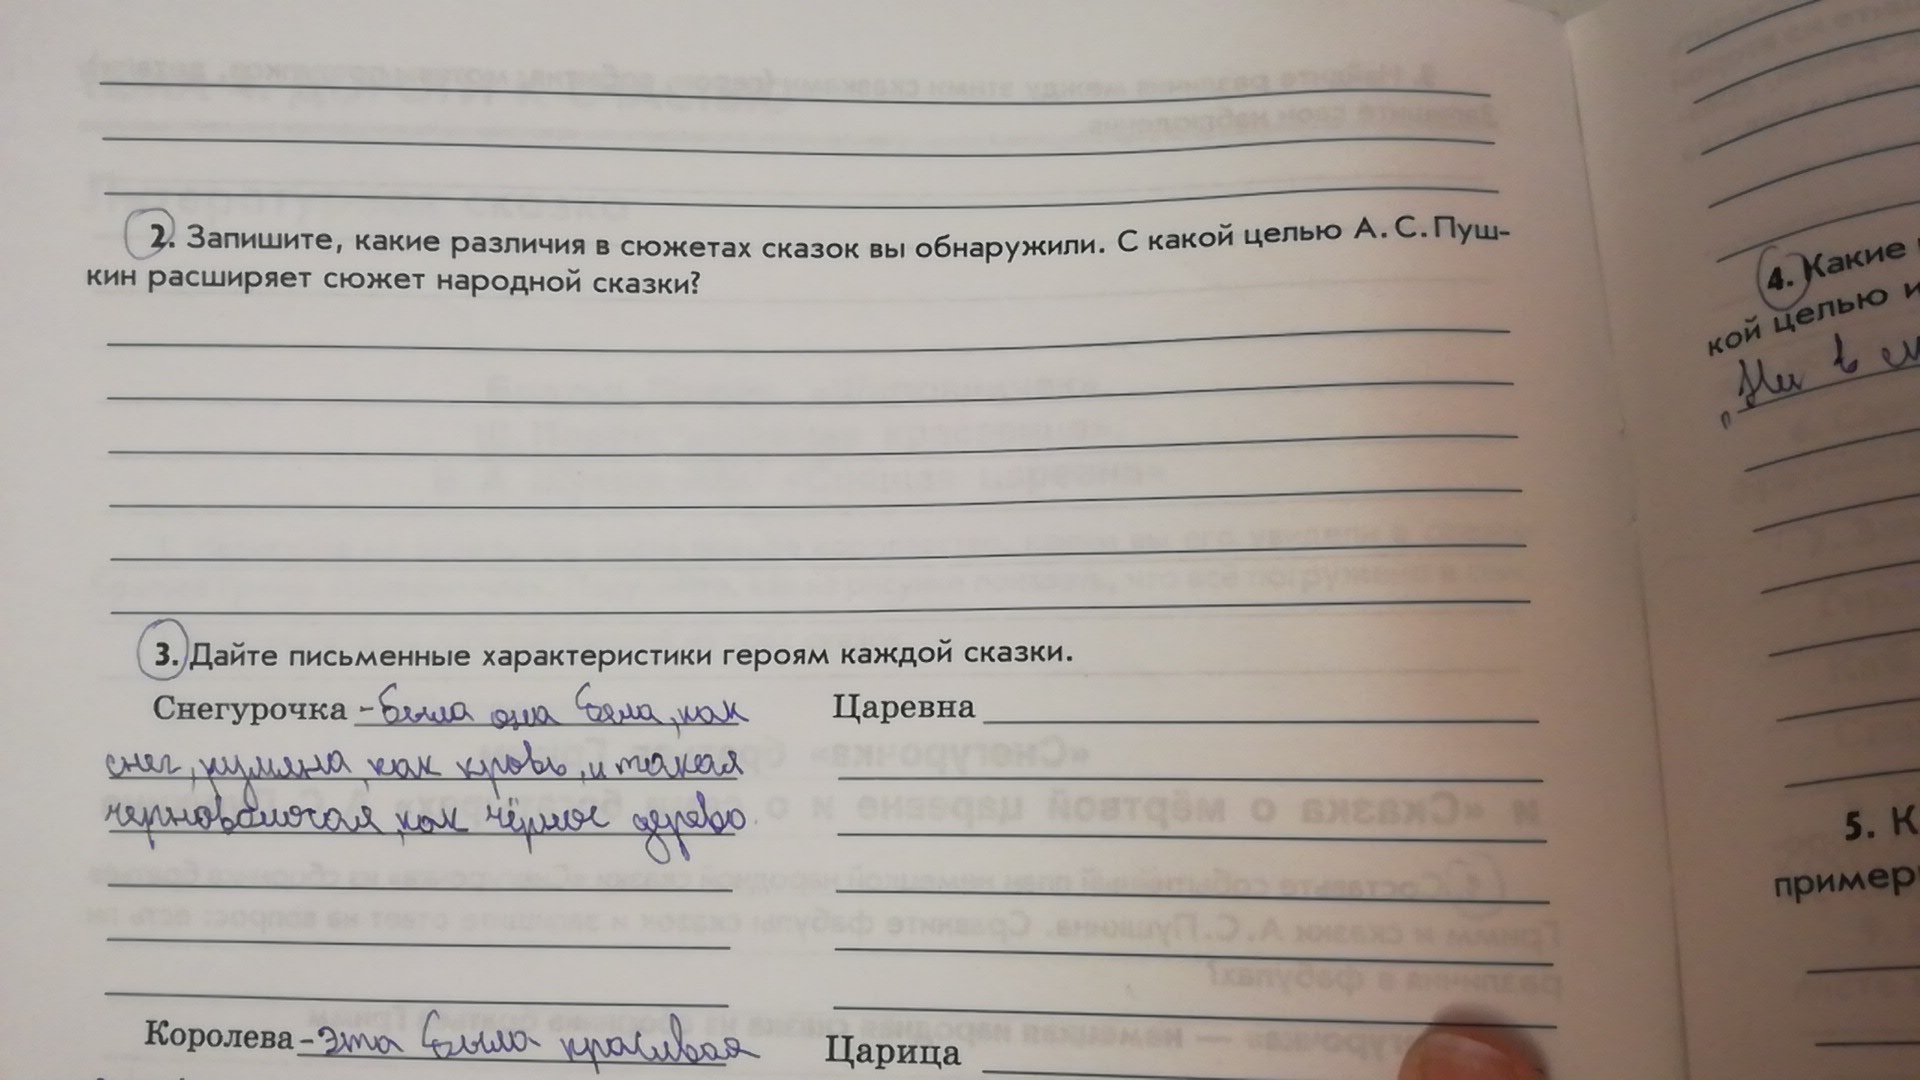 2. Запишите, какие различия в сюжетах сказок вы обнаружили. С какой целью А. С. Пуш-
кин расширяет сюжет народной сказки?
3. Дайте письменные характеристики героям каждой сказки.
Снегурочка - была она бела, как
снег, румяна, как кровь, и такая
черноволосая, как чёрное дерево.
Царевна
Королева - эта была красивая
Царица
4. Какие
кой целью и
5. К
пример